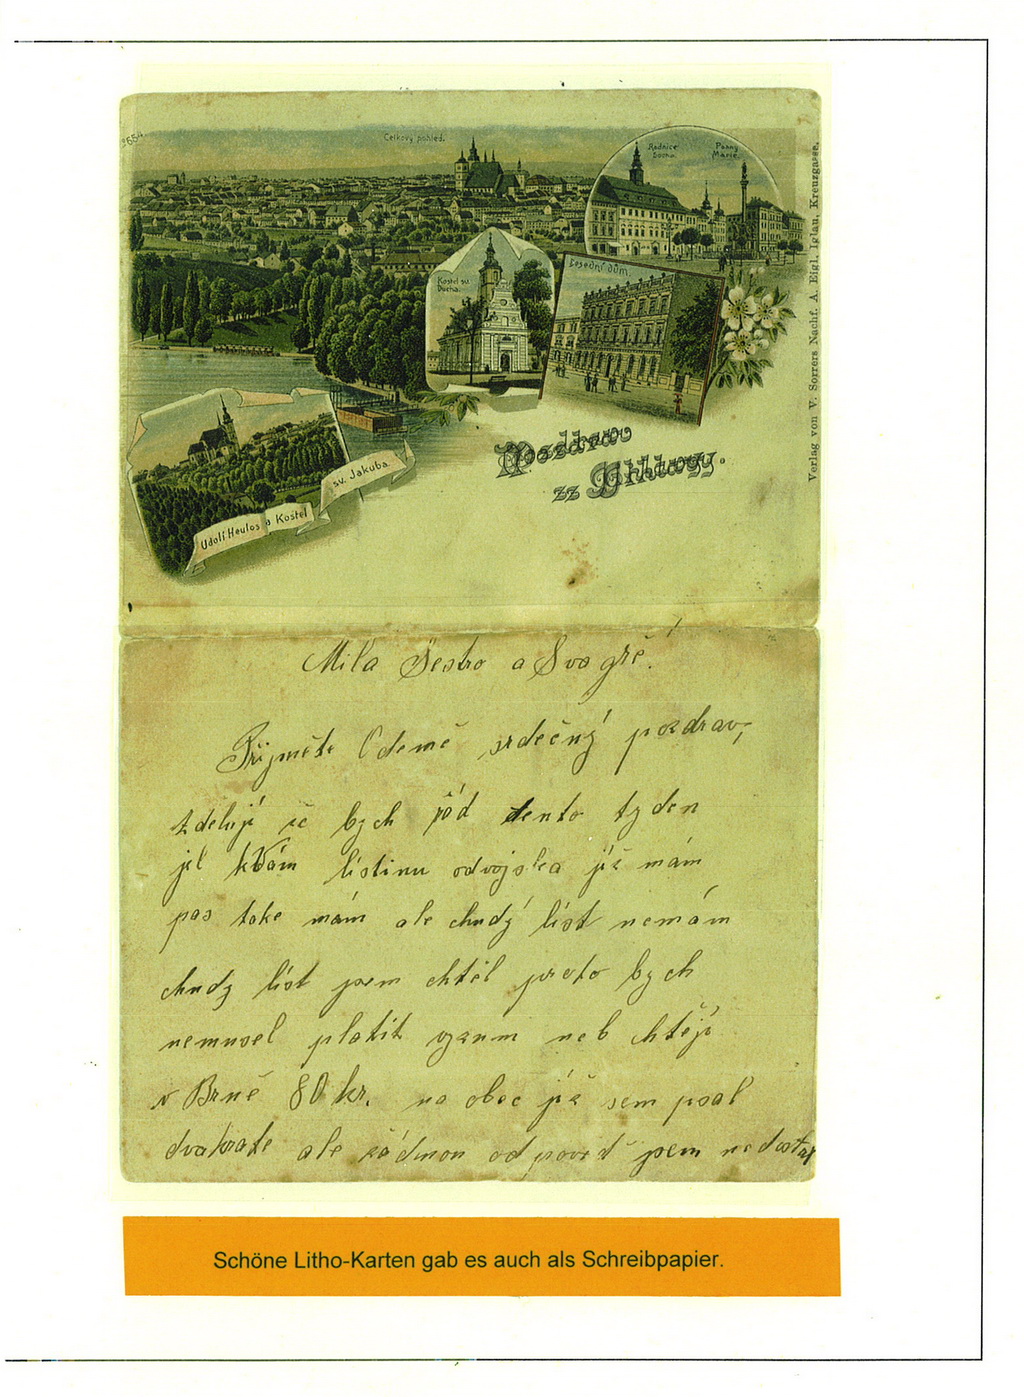 2654
Celkový pohled.
Radnice
Socha
Panny
Marie.
Kostel sv.
Ducha.
Besední dům.
Verlag von V. Sorrers Nachf. A. Eigl, Iglau, Kreuzgasse.
Pozdrav
z Jihlavy.
Udolí Heulos a Kostel sv. Jakuba.
Milá Sestro a Švagře!
Přijměte Odemě srdečný pozdrav,
zděluji že bych rád tento tyden
jel k Vám listinu odvojska již mám
pas take mám ale chudý list nemám
chudý list jsem chtěl proto bych
nemusel platit neb chtějí
v Brně 80 kr. na obec již sem psal
dvakrate ale žádnou odpověd jsem nedostal
Schöne Litho-Karten gab es auch als Schreibpapier.